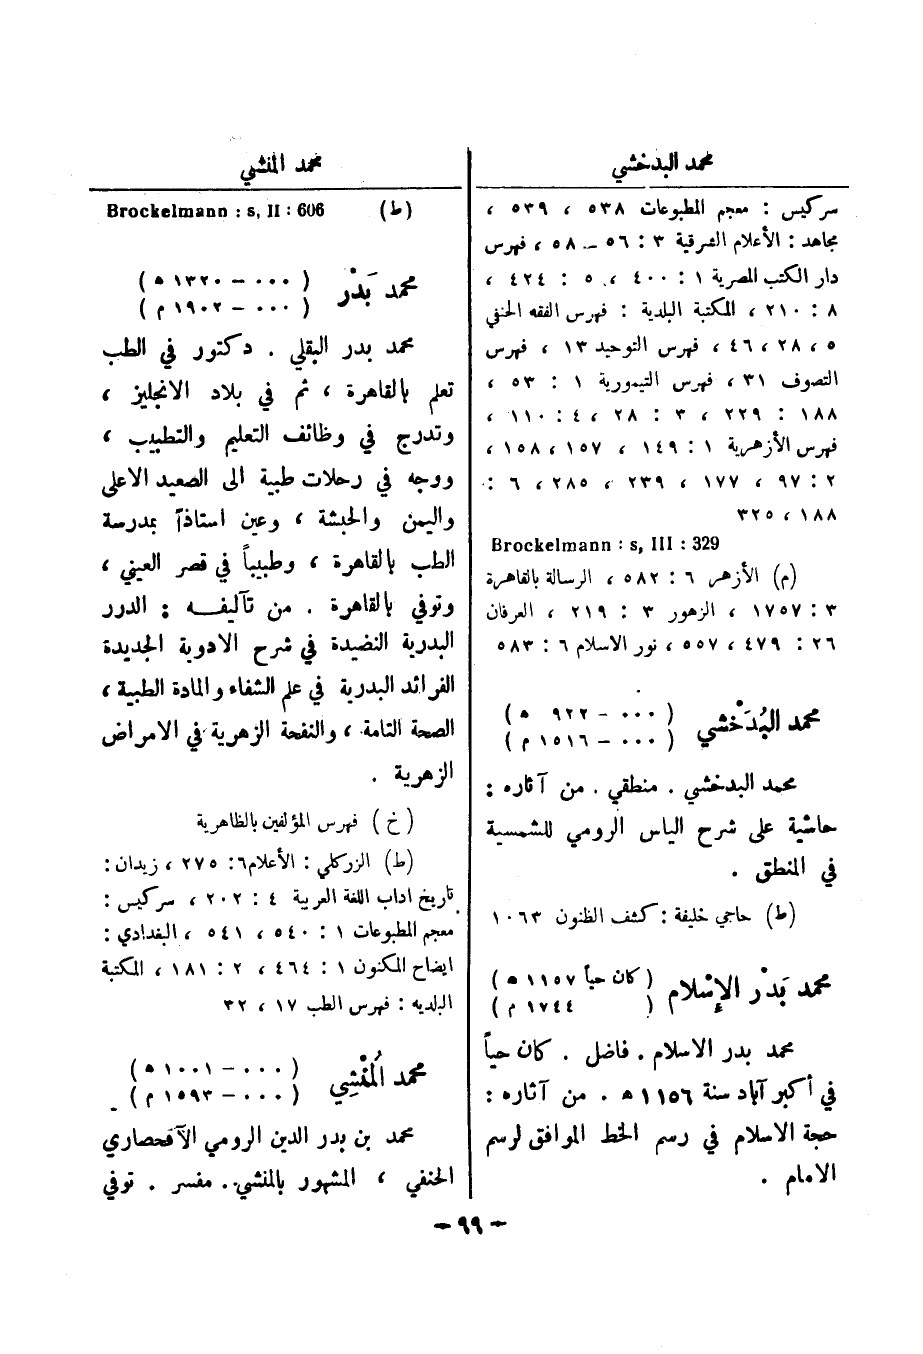 محمد البدخشي
سركيس : معجم المطبوعات ٥٣٨ ، ٥٣٩ ،
مجاهد : الأعلام الشرقية ٣ : ٥٦ – ٥٨ ، فهرس
دار الكتب المصرية ١ : ٤٠٠ ، ٥ : ٤٢٤ ،
٨ : ٢١٠ ، المكتبة البلدية : فهرس الفقه الحنفي
٥ ، ٢٨ ، ٤٦ ، فهرس التوحيد ١٣ ، فهرس
التصوف ٣١ ، فهرس التيمورية ١ : ٥٣ ،
١٨٨ : ٢٢٩ ، ٣ : ٢٨ ، ٤ : ١١٠ ،
فهرس الأزهرية ١ : ١٤٩ ، ١٥٧ ، ١٥٨ ،
٢ : ٩٧ ، ١٧٧ ، ٢٣٩ ، ٢٨٥ ، ٦ :
١٨٨ ، ٣٢٥
Brockelmann : s, III : 329
(م) الأزهر ٦ : ٥٨٢ ، الرسالة بالقاهرة
٣ : ١٧٥٧ ، الزهور ٣ : ٢١٩ ، العرفان
٢٦ : ٤٧٩ ، ٥٥٧ ، نور الاسلام ٦ : ٥٨٣
محمد البُدَخْشي ( ٠٠٠ – ٩٢٢ هـ )
( ٠٠٠ – ١٥١٦ م )
محمد البدخشي . منطقي . من آثاره :
حاشية على شرح الياس الرومي للشمسية
في المنطق .
(ط) حاجي خليفة : كشف الظنون ١٠٦٣
محمد بَدْر الإِسْلام (كان حياً ١١٥٧ هـ )
( ١٧٤٤ م )
محمد بدر الاسلام . فاضل . كان حياً
في أكبر آباد سنة ١١٥٦ هـ . من آثاره :
حجة الاسلام في رسم الخط الموافق لرسم
الامام .
محمد المنشي
(ط) Brockelmann : s, II : 606
محمد بَدْر ( ٠٠٠ – ١٣٢٠ هـ )
( ٠٠٠ – ١٩٠٢ م )
محمد بدر البقلي . دكتور في الطب
تعلم بالقاهرة ، ثم في بلاد الانجليز ،
وتدرج في وظائف التعليم والتطبيب ،
ووجه في رحلات طبية الى الصعيد الاعلى
واليمن والحبشة ، وعين استاذاً بمدرسة
الطب بالقاهرة ، وطبيباً في قصر العيني ،
وتوفي بالقاهرة . من تآليفه : الدرر
البدرية النضيدة في شرح الادوية الجديدة
الفرائد البدرية في علم الشفاء والمادة الطبية ،
الصحة التامة ، والنفحة الزهرية في الامراض
الزهرية .
( خ ) فهرس المؤلفين بالظاهرية
(ط) الزركلي : الأعلام ٦ : ٢٧٥ ، زيدان :
تاريخ اداب اللغة العربية ٤ : ٢٠٢ ، سركيس :
معجم المطبوعات ١ : ٥٤٠ ، ٥٤١ ، البغدادي :
ايضاح المكنون ١ : ٤٦٤ ، ٢ : ١٨١ ، المكتبة
البلديه : فهرس الطب ١٧ ، ٣٢
محمد المُنْشِي ( ٠٠٠ – ١٠٠١ هـ )
( ٠٠٠ – ١٥٩٣ م )
محمد بن بدر الدين الرومي الآقحصاري
الحنفي ، المشهور بالمنشي . مفسر . توفي
– ٩٩ –